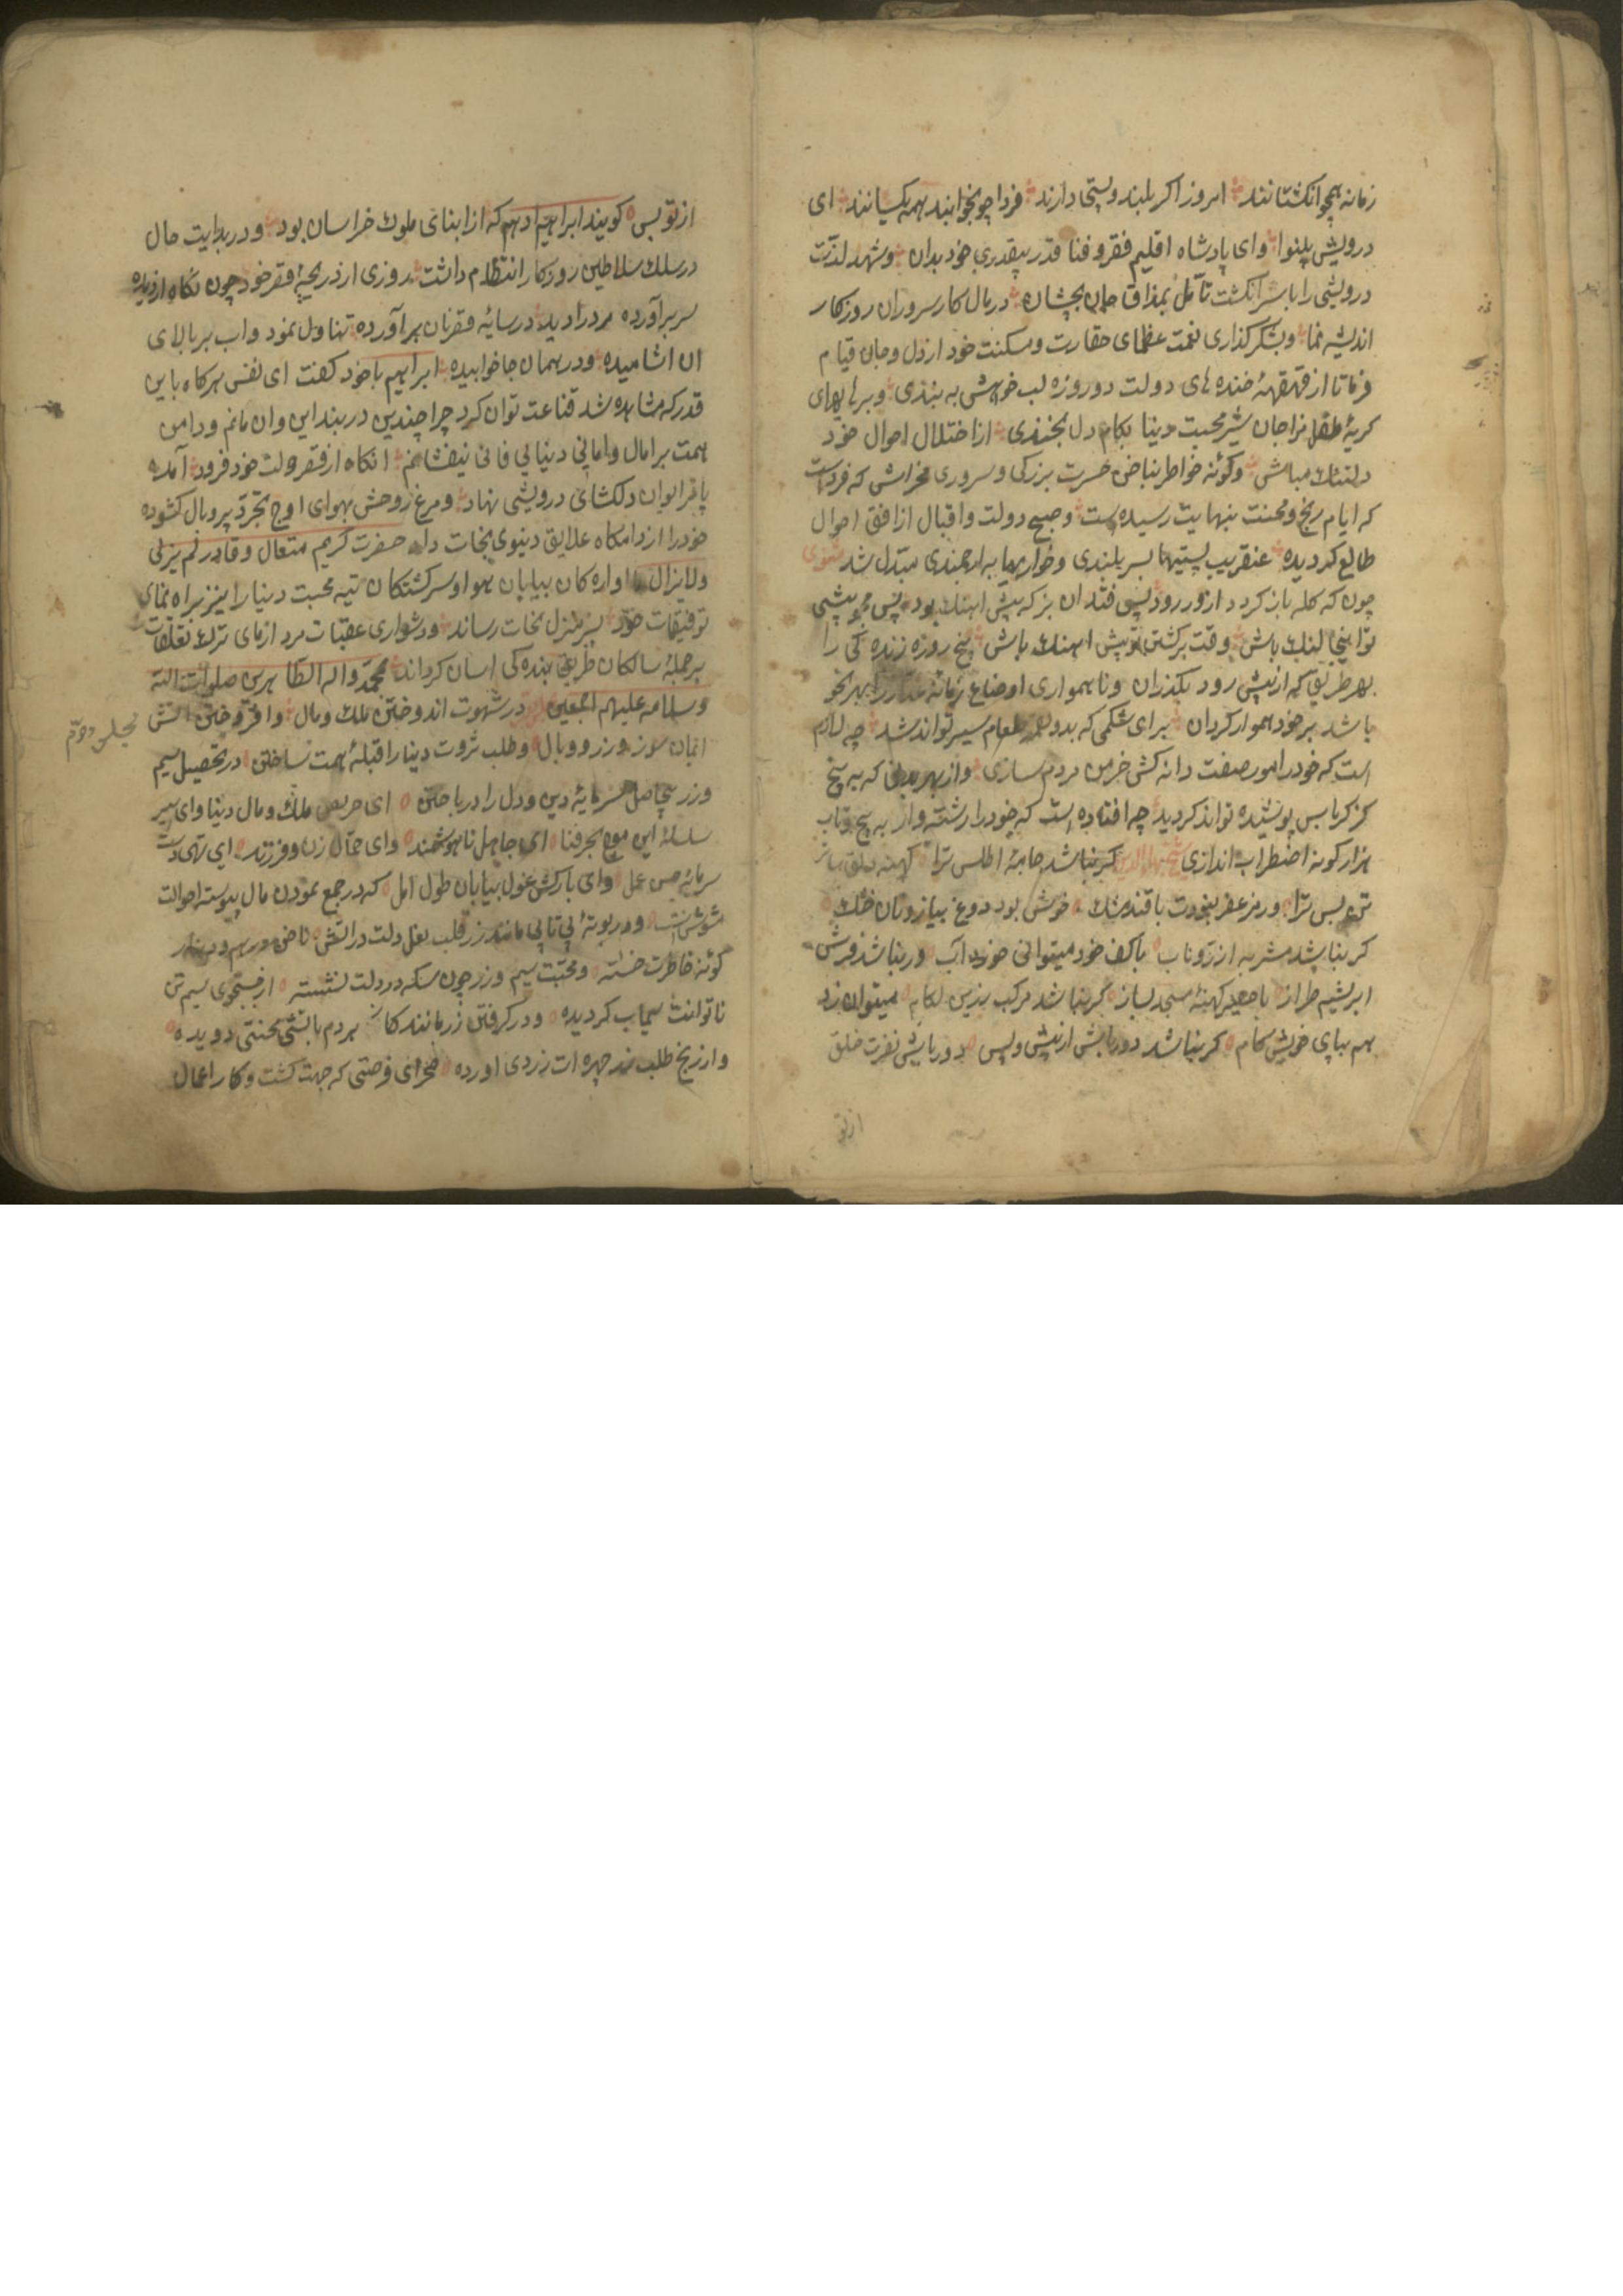 زمانه همچو انکشتانند امروز اکر بلند و پستی دارند فردا چو بخوابند همه یکسانند ای
درویش بینوا وای پادشاه اقلیم فقر و فنا قدر بیقدری خود بدان و شهد لذت
درویشی را با سر انکشت تأمل بمذاق جان بچشان در مال کار سروران روزکار
اندیشه نما و بشکر کذاری نعمت عظمای حقارت و مسکنت خود از دل و جان قیام
فرما تا از قهقههٔ خنده های دولت دو روزه لب خواهش به بندی و بر های های
کریهٔ طفل مزاجان شیر محبت دنیا بکام دل بخندی از اختلال احوال خود
دلتنك مباش و کونهٔ خاطر بناخن حسرت بزرکی و سروری مخراش که فرداست
که ایام رنج و محنت بنهایت رسیده است و صبح دولت و اقبال از افق احوال
طالع کردیده عنقریب پستیها بسربلندی و خواریها به ارجمندی مبدل شد مثنوی
چون که کله باز کردد از ورود پس فتد ان بز که پیش اهنك بود پس چو پیشی
تو اینجا لنك باش وقت برکشتن تو پیش اهنك باش پنج روزه زنده کی را
بهر طریق که از پیش رود بکذران و ناهمواری اوضاع زمانهٔ را بهر نحو
باشد بر خود هموار کردان برای شکمی که بدو طعام سیر تواند شد چه لازم
است که خود را مور صفت دانه کش خرمن مردم سازی و از بهر بدنی که به پنج
کز کرباس پوشیده تواند کردید چه افتاده است که خود را رشته وار به پیچ و تاب
هزار کونه اضطراب اندازی شیخ بهاالدین کر نباشد جامهٔ اطلس ترا کهنه دلقی ساتر
تن بس ترا ور مزعفر نبودت با قند و مشك خوش بود دوغ و پیاز و نان خشك
کر نباشد مشربه از زر ناب با کف خود میتوانی خورد آب ور نباشد فرش
ابریشم طراز با حصیر کهنهٔ مسجد بساز کر نباشد مرکب زرین لکام میتوان زد
هم بپای خویش کام کر نباشد دورباش از پیش و پس دورباش نفرت خلق
از تو
از تو بس کویند ابراهیم ادهم که از ابنای ملوك خراسان بود و در بدایت حال
در سلك سلاطین روزکار انتظام داشت روزی از دریچهٔ قصر خود چون نکاه از دیده
سر برآورده مردرا دید در سایهٔ قصر نان برآورده تناول نمود و اب بر بالای
ان اشامیده و در همان جا خوابیده ابراهیم با خود کفت ای نفس هرکاه باین
قدر که مشاهده شد قناعت توان کرد چرا چندین در بند این و ان مانم و دامن
همت بر امال و امانی دنیای فانی نیفشانم انکاه از قصر دولت خود فرود آمده
پا بر ایوان دلکشای درویشی نهاد و مرغ روحش بهوای اوج تجرد پر و بال کشوده
خود را از دامکاه علایق دنیوی نجات داد حضرت کریم متعال و قادر لم یزلی
ولا یزال اواره کان بیابان هوا و سرکشتکان تیه محبت دنیا را نیز براه نمای
توفیقات خود بسر منزل نجات رساند و دشواری عقبات مرد ازمای ترك تعلقات
بر جملهٔ سالکان طریق بنده کی اسان کرداند بمحمد و اله الطاهرین صلوات الله
و سلامه علیهم اجمعین در شهوت اندوختن ملك و مال و افروختن اتش
مجلس دوم
ایمان سوز وزر و وبال و طلب ثروت دنیا را قبلهٔ همت ساختن و در تحصیل سیم
و زر بیحاصل سرمایهٔ دین و دل را در باختن ای حریص ملك و مال دنیا وای اسیر
سلسلهٔ این موج بحر فنا ای جاهل ناهوشمند وای حمال زن و فرزند ای تهی دست
سرمایهٔ حسن عمل وای بارکش غول بیابان طول امل که در جمع نمودن مال پیوسته احوالت
مشوش است و در بوتهٔ بی تابی مانند زر قلب نعل دلت در اتش ناخن درهم و دینار
کونهٔ خاطرت خسته و محبت سیم و زر چون سکه در دلت نشسته از جستجوی سیم تن
ناتوانت سیماب کردیده و در کرفتن زر مانند کاز هر دم با تشی محنتی دویده
و از رنج طلب زر چهره ات زردی اورده فخرای فرصتی که جهت کشت و کار اعمال